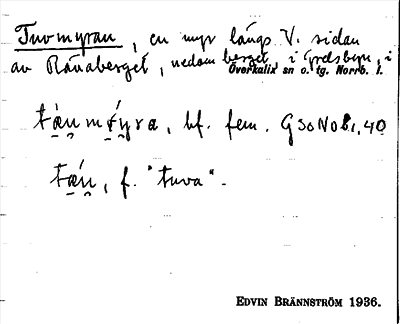 Tuvmyran, en myr längs V. sidan
av Rånaberget, nedom berget, i Grelsbyn, i
Överkalix sn o. tg. Norrb. l.
bf. fem. GSONOB 1, 40
f. "tuva".
EDVIN BRÄNNSTRÖM 1936.